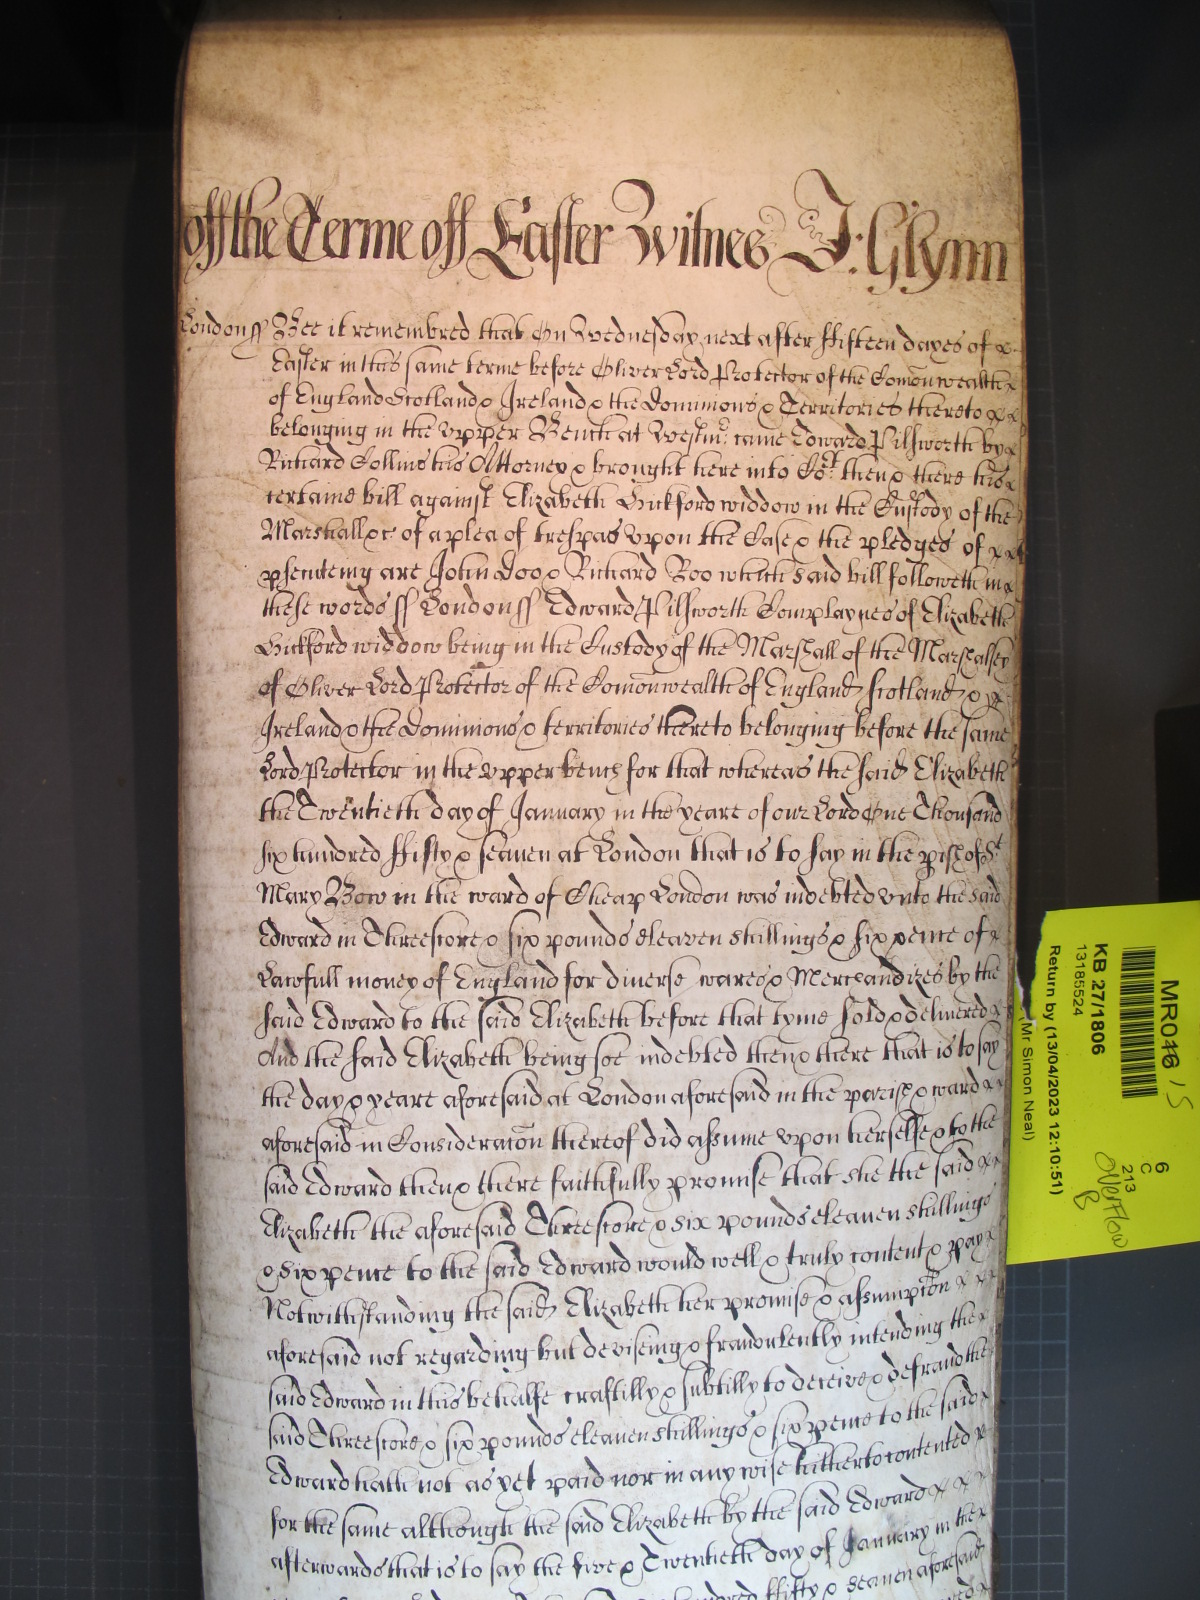 off the Terme off Easter Witnes J: Glynn
London ss Bee it remembred that On Wednesday next after ffifteen dayes of
Easter in this same terme before Oliver Lord Protector of the Comonwealth
of England Scotland & Ireland & the Dominions & Territories thereto
belonging in the upper Bench at Westmr: came Edward Pilsworth by
Richard Collins his Attorney & brought here into Cort then & there his
certaine bill against Elizabeth Bickford widdow in the Custody of the
Marshall &c of a plea of trespas upon the Case & the pledges of
psecuteing are John Doo & Richard Roo which said bill followeth in
these words ss London ss Edward Pilsworth Complaynes of Elizabeth
Bickford widdow being in the Custody of the Marshall of the Marshalsey
of Oliver Lord Protector of the Comonwealth of England Scotland &
Ireland & the Dominions & territories thereto belonging before the same
Lord Protector in the upper bench for that whereas the said Elizabeth
the Twentieth day of January in the yeare of our Lord One Thousand
six hundred ffifty & seaven at London that is to say in the pish of St
Mary Bow in the ward of Cheap London was indebted unto the said
Edward in Threescore & six pounds eleaven shillings & six pence of
Lawfull money of England for diverse wares & Merchandizes by the
said Edward to the said Elizabeth before that tyme sold & delivered
And the said Elizabeth being soe indebted then & there that is to say
the day & yeare aforesaid at London aforesaid in the parish & ward
aforesaid in Consideracon thereof did assume upon herselfe & to the
said Edward then & there faithfully promise that she the said
Elizabeth the aforesaid Threescore & six pounds eleaven shillings
& six pence to the said Edward would well & truly content & pay
Notwithstanding the said Elizabeth her promise & assumpcon
aforesaid not regarding but deviseing & fraudulently intending the
said Edward in this behalfe craftilly & subtilly to deceive & defraud the
said Threescore & six pounds eleaven shillings & six pence to the said
Edward hath not as yet paid nor in any wise hitherto contented
for the same although the said Elizabeth by the said Edward
afterwards that is to say the five & Twentieth day of January in the
hundred ffifty & seaven aforesaid
MR046 / 5
KB 27/1806
13185524
Return by (13/04/2023 12:10:51)
Mr Simon Neal)
6
C
213
Overflow
B